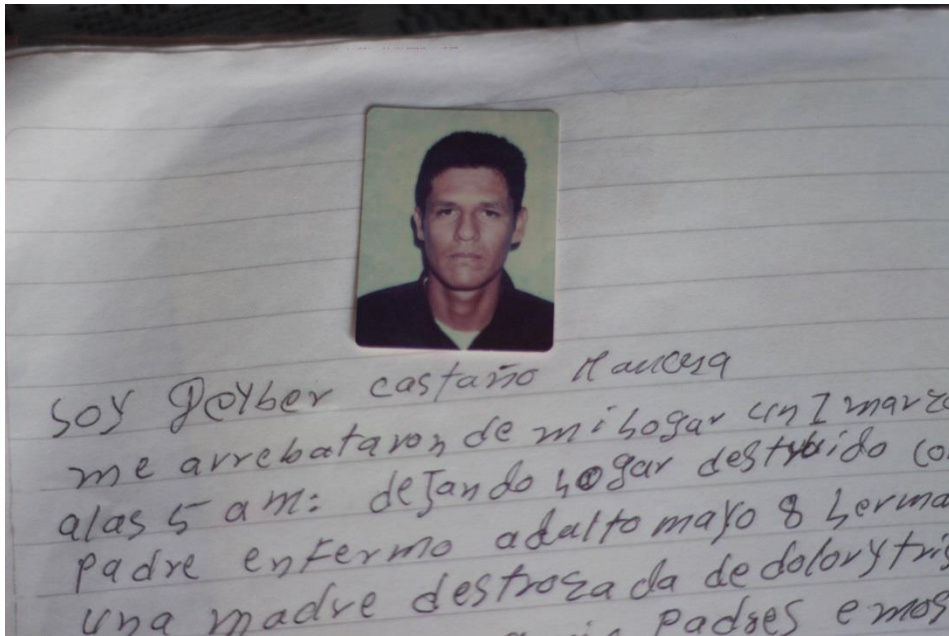 Soy Deyber castaño Mancera
me arrebataron de mi hogar un 1 marzo
alas 5 am: dejando hogar destruido co
padre enfermo adulto mayo 8 herma
una madre destrozada de dolor y tris
padres emos